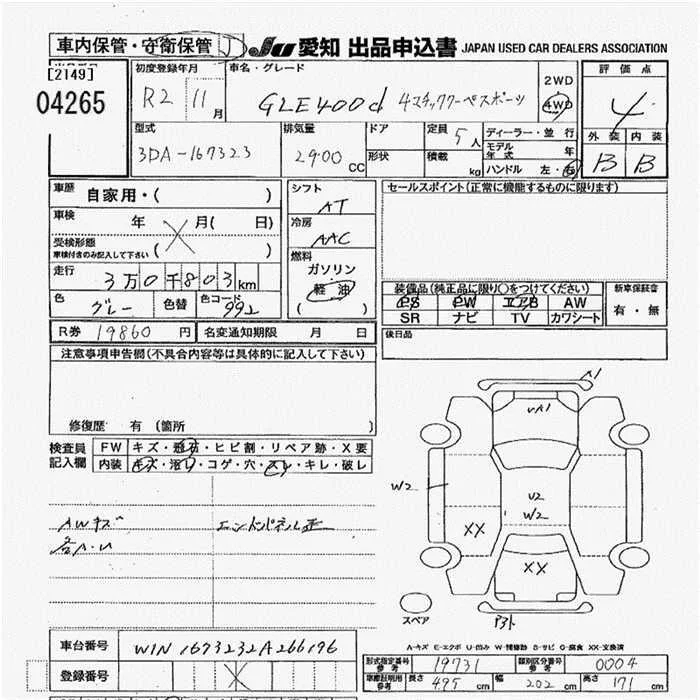 車内保管・守衛保管 JU 愛知 出品申込書 JAPAN USED CAR DEALERS ASSOCIATION
[2149]
04265
初度登録年月
R2 11 月
車名・グレード
GLE400d 4マチッククーペスポーツ
2WD
4WD
評価点
4
外装 内装
B B
型式
3DA-167323
排気量
2900 CC
ドア
形状
定員 5 人
積載 kg
ディーラー・並行
モデル年式 年
ハンドル 左・右
車歴 自家用・( )
車検 年 X 月( 日)
受検形態
車検付きのみ記入して下さい ( )
走行 3万0千803km
色 グレー 色替 色コード 992
R券 19860 円 名変通知期限 月 日
シフト
AT
冷房
AAC
燃料
ガソリン
軽油
( )
セールスポイント(正常に機能するものに限ります)
装備品(純正品に限り○をつけてください)
PS PW エアB AW
SR ナビ TV カワシート
新車保証書
有・無
後日品
注意事項申告欄(不具合内容等は具体的に記入して下さい)
修復歴 有 (箇所 )
検査員記入欄
FW キズ・飛石・ヒビ割・リペア跡・X要
内装 キズ・汚レ・コゲ・穴・スレ・キレ・破レ
AWキズ
各A・U
A1
UA1
W2
U2
W2
XX
XX
スペア
A-キズ E-エクボ U-凹み W-補修跡 S-サビ C-腐食 XX-交換済
車台番号 W1N1673232A266196
登録番号 X
型式指定番号 参考 19731 類別区分番号 参考 0004
車庫証明用 参考 長さ 495 cm 幅 202 cm 高さ 171 cm